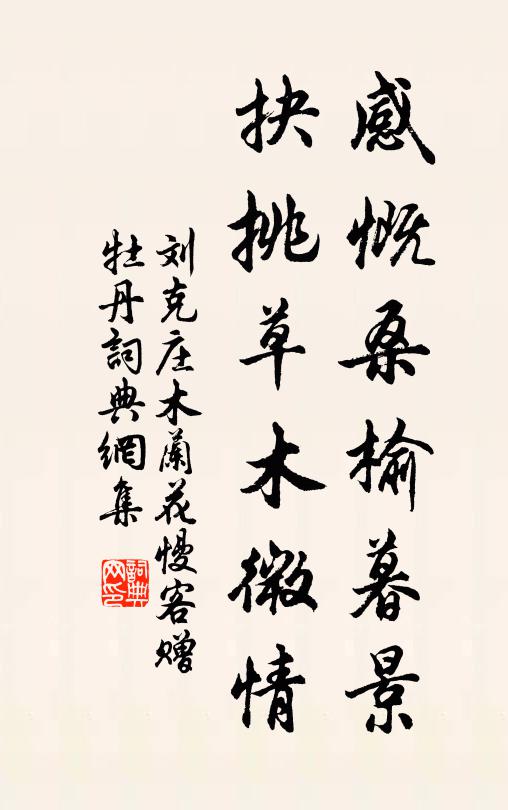 感慨桑榆暮景
抉挑草木微情
刘克庄木蘭花慢客赠
牡丹詞典網集
詞典
网印